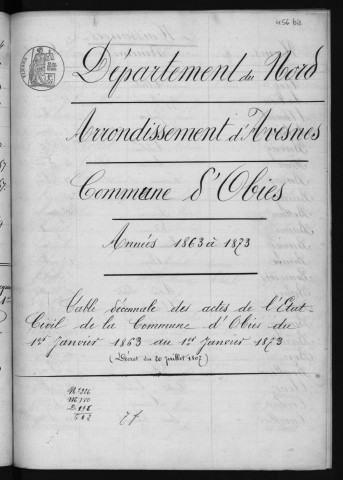 456 bis
Département du Nord
Arrondissement d'Avesnes
Commune d'Obies
Années 1863 à 1873
Table décennale des actes de l'Etat-
Civil de la Commune d'Obies du
1er Janvier 1863 au 1er Janvier 1873
(Décret du 20 juillet 1807)